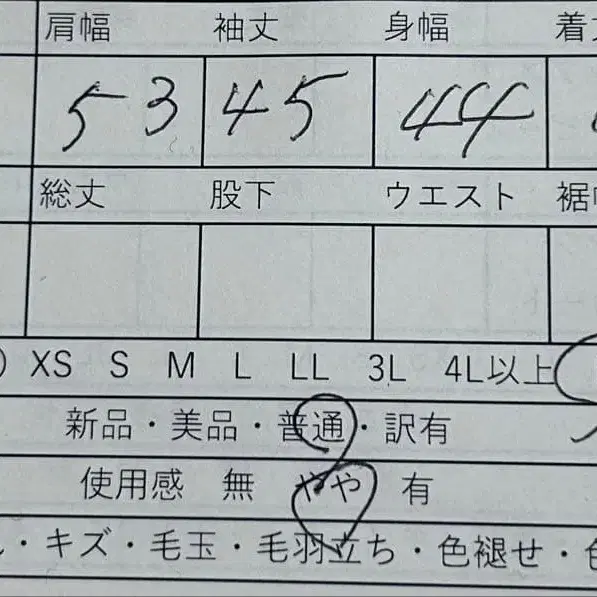 肩幅 袖丈 身幅 着
53 45 44
総丈 股下 ウエスト 裾
) XS S M L LL 3L 4L以上
新品・美品・普通・訳有
使用感 無 やや 有
・キズ・毛玉・毛羽立ち・色褪せ・